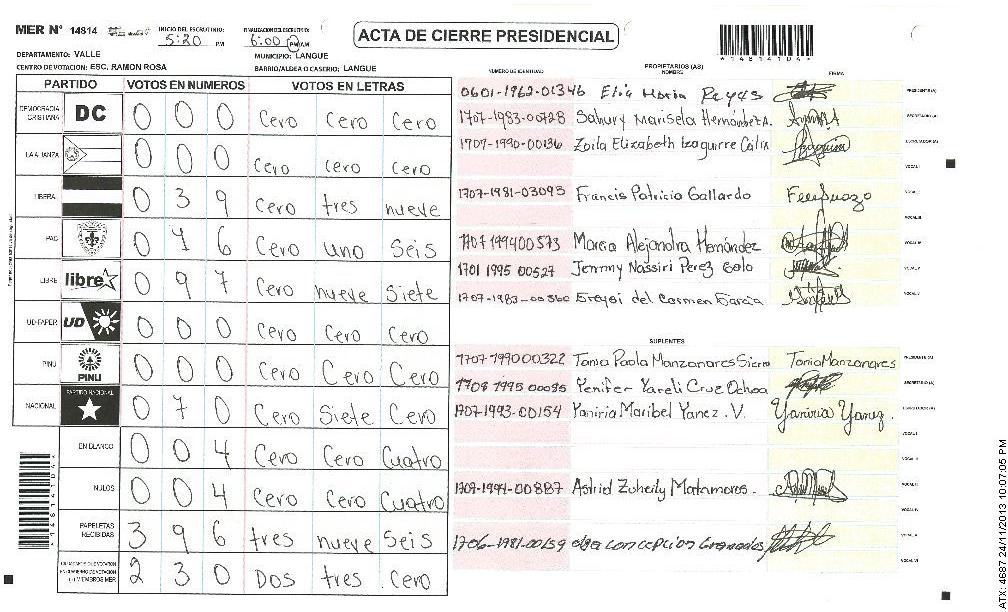 MER Nº 14814
INICIO DEL ESCRUTINIO: 5:20 PM
FINALIZACION DEL ESCRUTINIO: 6:00 PM AM
ACTA DE CIERRE PRESIDENCIAL
*1481410A*
DEPARTAMENTO: VALLE
MUNICIPIO: LANGUE
CENTRO DE VOTACION: ESC. RAMON ROSA
BARRIO/ALDEA O CASERIO: LANGUE
PARTIDO VOTOS EN NUMEROS VOTOS EN LETRAS
DEMOCRACIA CRISTIANA DC 0 0 0 Cero Cero Cero
LA ALIANZA 0 0 0 Cero Cero Cero
LIBERAL 0 3 9 Cero tres nueve
PAC 0 1 6 Cero Uno Seis
LIBRE libre 0 9 7 Cero nueve Siete
UD-FAPER UD 0 0 0 Cero Cero Cero
PINU PINU 0 0 0 Cero Cero Cero
NACIONAL PARTIDO NACIONAL 0 7 0 Cero Siete Cero
EN BLANCO 0 0 4 Cero Cero Cuatro
NULOS 0 0 4 Cero Cero Cuatro
PAPELETAS RECIBIDAS 3 9 6 tres nueve Seis
2 3 0 Dos tres Cero
NUMERO DE IDENTIDAD PROPIETARIOS (AS) NOMBRE FIRMA
0601-1962-01346 Elia Maria Reyes PRESIDENTE (A)
1707-1983-00728 Sahury Marisela Hernández A. SECRETARIO (A)
1707-1990-00136 Zoila Elizabeth Izaguirre Calix ESCRUTADOR (A)
VOCAL I
1707-1981-03093 Francis Patricio Gallardo VOCAL II
VOCAL III
1707 199400573 Marcia Alejandra Hernández VOCAL IV
1701 1995 00527 Jemmy Nassiri Perez Soto VOCAL V
1707-1983-00360 Greysi del Carmen Garcia VOCAL V
SUPLENTES
1707-199000322 Tania Paola Manzanares Siero Tania Manzanares PRESIDENTE (A)
1708 1995 00095 Yenifer Yareli Cruz Ochoa SECRETARIO (A)
1707-1993-00154 Yaniria Maribel Yanez . V. Yaniria Yanez. ESCRUTADOR (A)
VOCAL I
VOCAL II
1709-1994-00887 Astrid Zuheily Matamoros. VOCAL III
VOCAL IV
1706-1981-00159 olga concepcion Granados VOCAL V
VOCAL VI
ATX: 4687 24/11/2013 10:07:05 PM